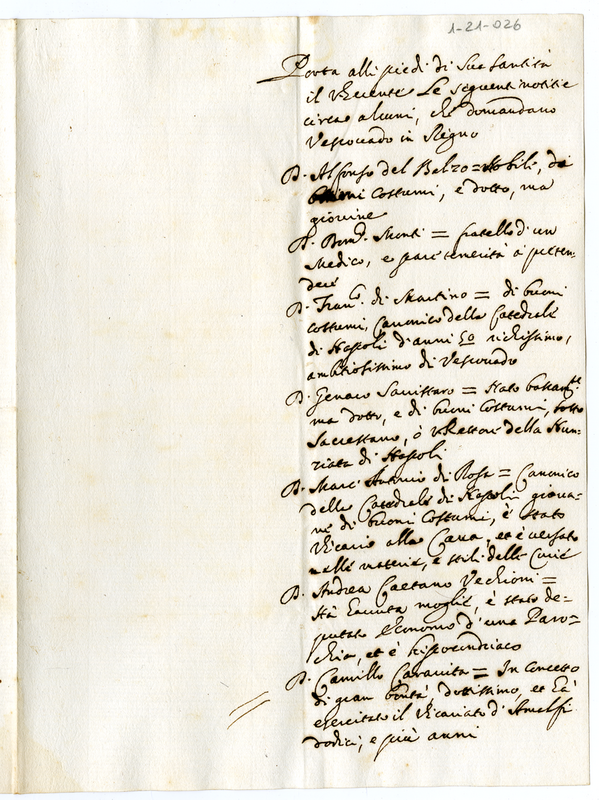 1-21-026
Porta alli piedi di Sua Santità
il Vicente le seguenti notitie
circa alcuni, che domandano
Vescovado in Regno
D. Alfonso del Balzo = Nobile, di
buoni Costumi, e dotto, ma
giovine
D. Bern.º Monti = fratello d'un
Medico, e pare temerità à preten-
dere
D. Fran.co di Martino = di buoni
costumi, Canonico della Catedrale
di Napoli d'anni 50 richissimo,
ambitiosissimo di Vescovado
D. Genaro = Nato bassam.te
ma dotto, e di buoni Costumi,
Sacrestano, ò Rettore della Nun-
riata di Napoli
D. Marc' Antonio di Rosa = Canonico
della Catedrale di Napoli giova-
ne di buoni Costumi, è stato
Vicario alla Cava, et è versato
nelle materie, e stili delle Curie
D. Andrea Caetano Vechioni =
Hà hauuta moglie, è stato de=
putato Economo d'una Paro=
chia, et è hipocondriaco
D. Camillo Caravita = In concetto
di gran bontà dottissimo, et hà
esercitato il Vicariato d'Amalfi
dodici, e più anni